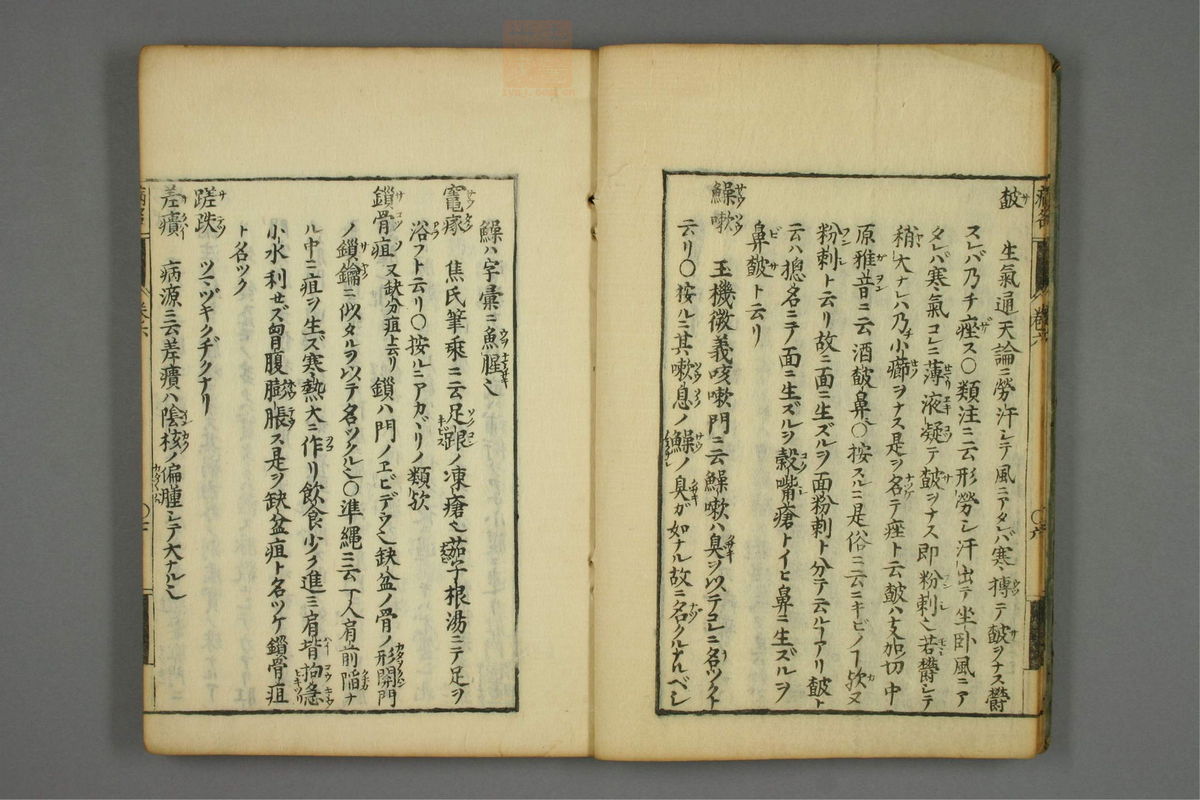 皶
生氣通天論ニ勞汗シテ風ニアタレバ寒搏テ皶ヲナス欝
スレバ乃チ痤ス〇類注ニ云形勞シ汗出テ坐卧風ニア
タレバ寒氣コレニ薄液凝テ皶ヲナス即粉刺也若欝シテ
稍大ナレハ乃チ小癤ヲナス是ヲ名テ痤ト云皶ハ支加切中
原雅音ニ云酒皶鼻〇按スルニ是俗ニ云ニキビノ欤又
粉刺ト云リ故ニ面ニ生ズルヲ面粉刺ト分テ云ルヿアリ皶ト
云ハ捴名ニテ面ニ生ズルヲ穀嘴瘡トイヒ鼻ニ生ズルヲ
鼻皶ト云リ
鱢嗽 玉機微義咳嗽門ニ云鱢嗽ハ臭ヲ以テコレニ名ツクト
云リ〇按ルニ其嗽息ノ鱢ノ臭ガ如ナル故ニ名クルナルベシ
鱢ハ字彙ニ魚腥也
竃瘃 焦氏筆乗ニ云足跟ノ凍瘡也茄子根湯ニテ足ヲ
浴フト云リ〇按ルニアカヾリノ類欤
鎖骨疽 又缺分疽ト云リ鎖ハ門ノエビデウ也缺盆ノ骨ノ形開門
ノ鎖鑰ニ似タルヲ以テ名ツクル也〇準繩ニ云丁人肩前陥ナ
ル中ニ疽ヲ生ズ寒熱大ニ作リ飲食少ク進ミ肩背拘急
小水利セズ胷腹膨脹ス是ヲ缺盆疽ト名ツケ鎖骨疽
ト名ツク
蹉跌 ツマヅキクヂクナリ
差㿉 病源ニ云差㿉ハ陰核ノ偏腫シテ大ナル也